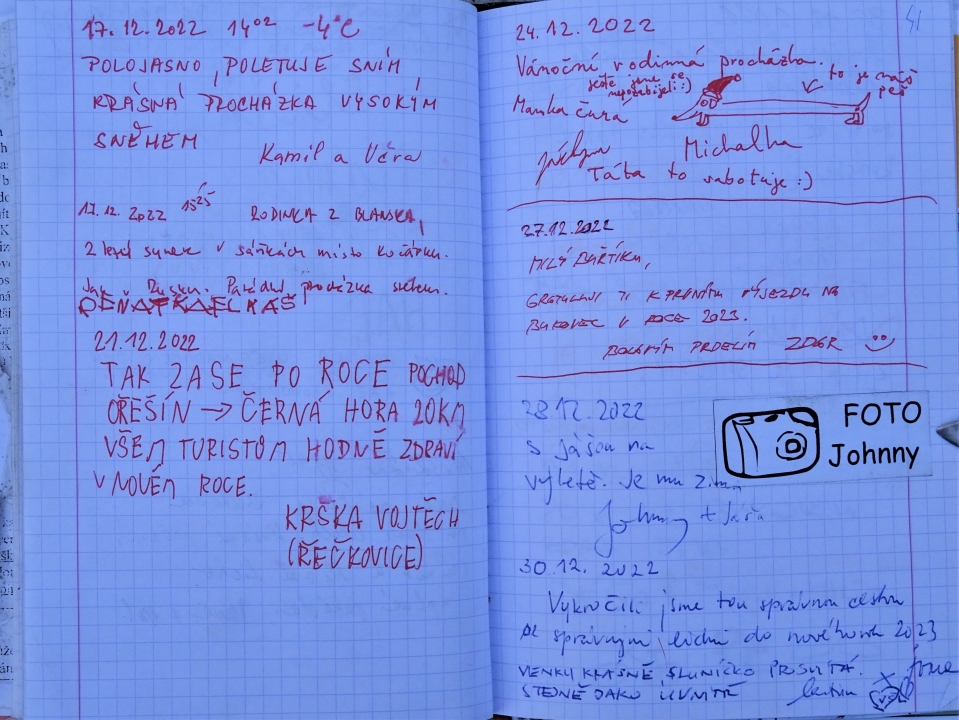 17.12.2022 14⁰² -4°C
POLOJASNO, POLETUJE SNÍH,
KRÁSNÁ PROCHÁZKA VYSOKÝM
SNĚHEM
Kamil a Věra
17.12.2022 15²⁵ RODINKA Z BLANSKA,
2 letý synek v sáňkách místo kočárku.
Jak v Rusku. Parádní procházka sněhem.
21.12.2022
TAK ZASE PO ROCE POCHOD
OŘEŠÍN → ČERNÁ HORA 20KM
VŠEM TURISTŮM HODNĚ ZDRAVÍ
V NOVÉM ROCE.
KRŠKA VOJTĚCH
(ŘEČKOVICE)
41
24.12.2022
Vánoční rodinná procházka.
ještě jsme se nepozabíjeli :)
to je náš
pes
Mamka čůrá
Michalka
Táta to sabotuje :)
27.12.2022
MILÝ BUŘTÍKU,
GRATULUJI TI K PRVNÍMU VÝJEZDU NA
BUKOVEC V ROCE 2023.
ZDAR
28.12.2022
s Jášou na
výletě. Je mu zima
Johnny + Jáša
FOTO
Johnny
30.12.2022
Vykročili jsme tou správnou cestou
se správnými lidmi do nového roku 2023
VENKU KRÁSNĚ, SLUNÍČKO PROSVÍTÁ.
STEJNĚ JAKO UVNITŘ